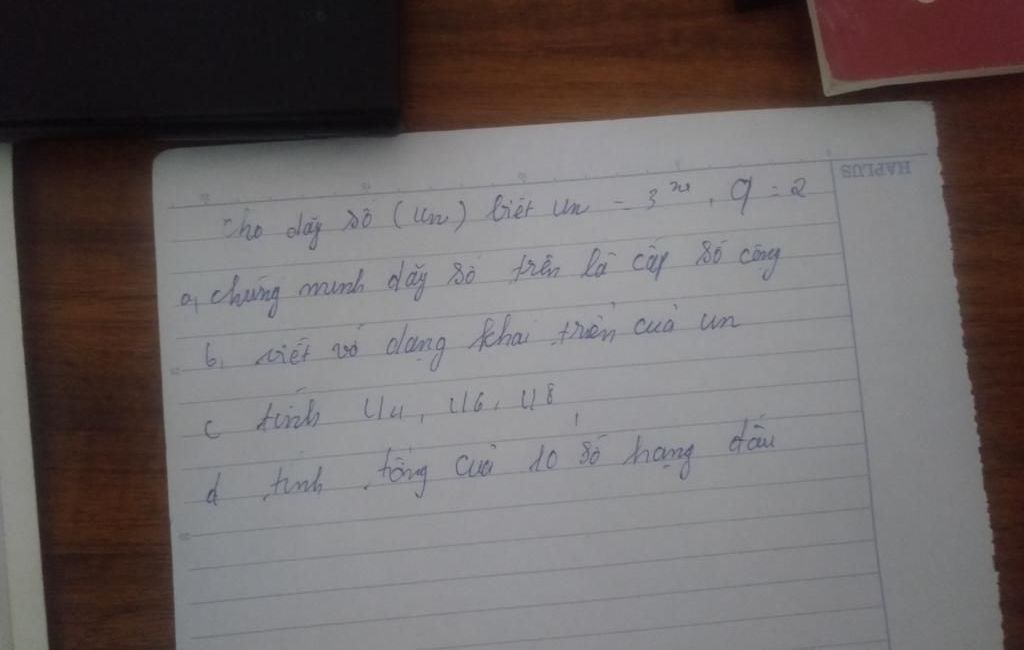 HAPLUS
Cho dãy số (Un) biết Un = 3ⁿ, q = 2
a, chứng minh dãy số trên là cấp số cộng
b, viết về dạng khai triển của un
c tính U4, U6, U8
d tính tổng của 10 số hạng đầu